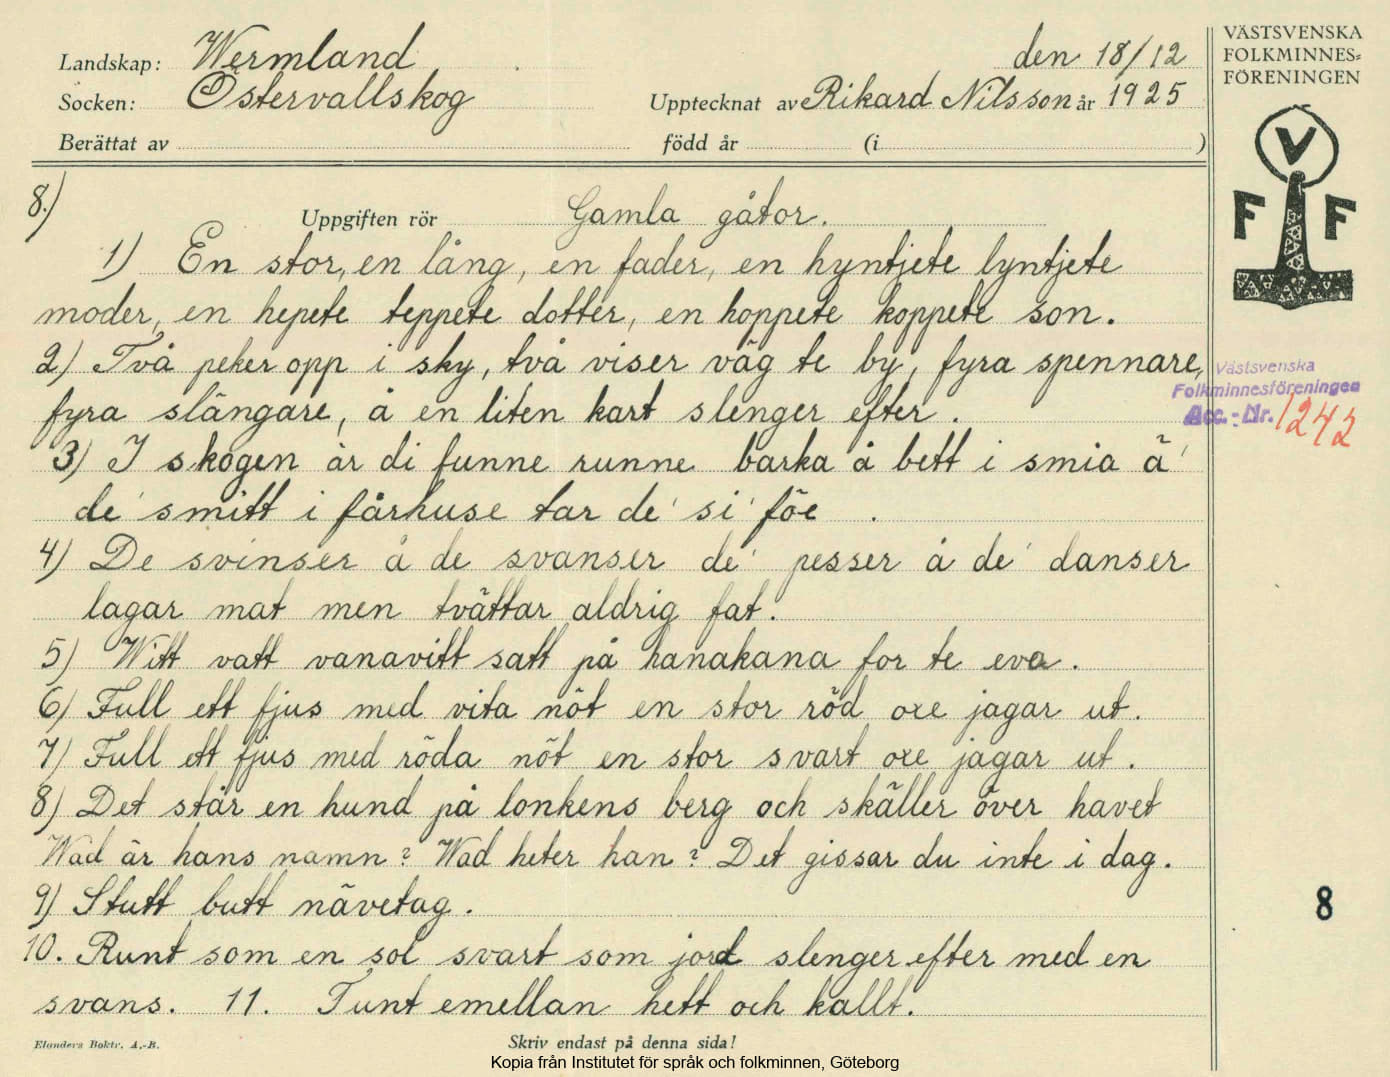 Landskap: Wermland den 18/12
Socken: Östervallskog Upptecknat av Rikard Nilsson år 1925
Berättat av född år (i )
VÄSTSVENSKA
FOLKMINNES=
FÖRENINGEN
V
F F
8.)
Uppgiften rör Gamla gåtor.
1) En stor, en lång, en fader, en hyntjete lyntjete
moder, en hepete teppete dotter, en hoppete koppete son.
2) Två peker opp i sky, två viser väg te by, fyra spennare,
fyra slängare, å en liten kart slenger efter.
3) I skogen är di funne runne barka å bett i smia ä'
de' smitt i fårhuse tar de' si' föe.
4) De svinser å de svanser de' pesser å de' danser
lagar mat men tvättar aldrig fat.
5) Witt vatt vanavitt satt på hanakana for te eva.
6) Full ett fjus med vita nöt en stor röd oxe jagar ut.
7) Full ett fjus med röda nöt en stor svart oxe jagar ut.
8) Det står en hund på lonkens berg och skäller över havet
Wad är hans namn? Wad heter han? Det gissar du inte i dag.
9) Stutt butt nävetag.
10. Runt som en sol svart som jord slenger efter med en
svans. 11. Tunt emellan hett och kallt.
Västsvenska
Folkminnesföreningen
Acc. - Nr. 1242
8
Elanders Boktr. A.-B.
Skriv endast på denna sida!
Kopia från Institutet för språk och folkminnen, Göteborg